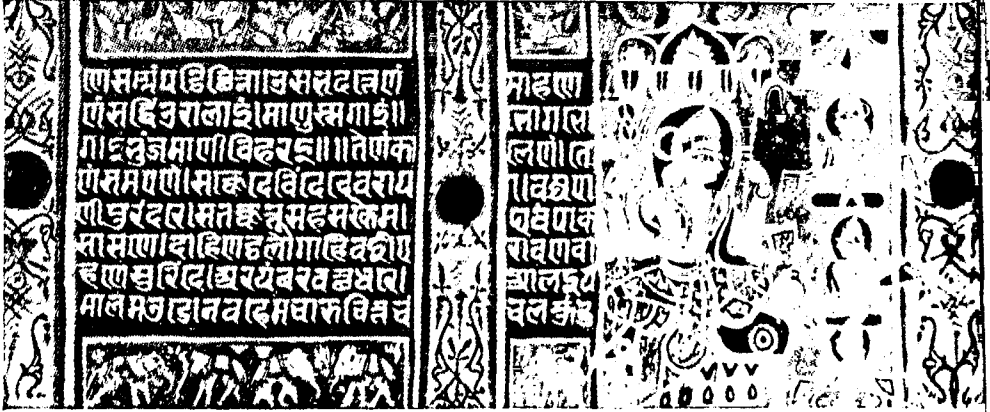 णं सम्मं पडिच्छित्ता उसभदत्तेणं
णं सद्धिं उरालाइं माणुस्सगाइं॥
गाइं भुंजमाणी विहरइ॥॥ तेणं का
णं समएणं। सक्के देविंदे देवराया
णी पुरंदरे। सतक्कतू सहस्सक्खे म
सासणे। दाहिणड्ढलोगाहिवई ए
हणे सुरिंदे। अरयंबरवत्थधरे।
मालमउडे नवहेमचारुचित्तचं
माहणे
भोगभो
लेणं। ते
वज्जपा
घवं पाक
रावणवा
आलइय
चलकुंड